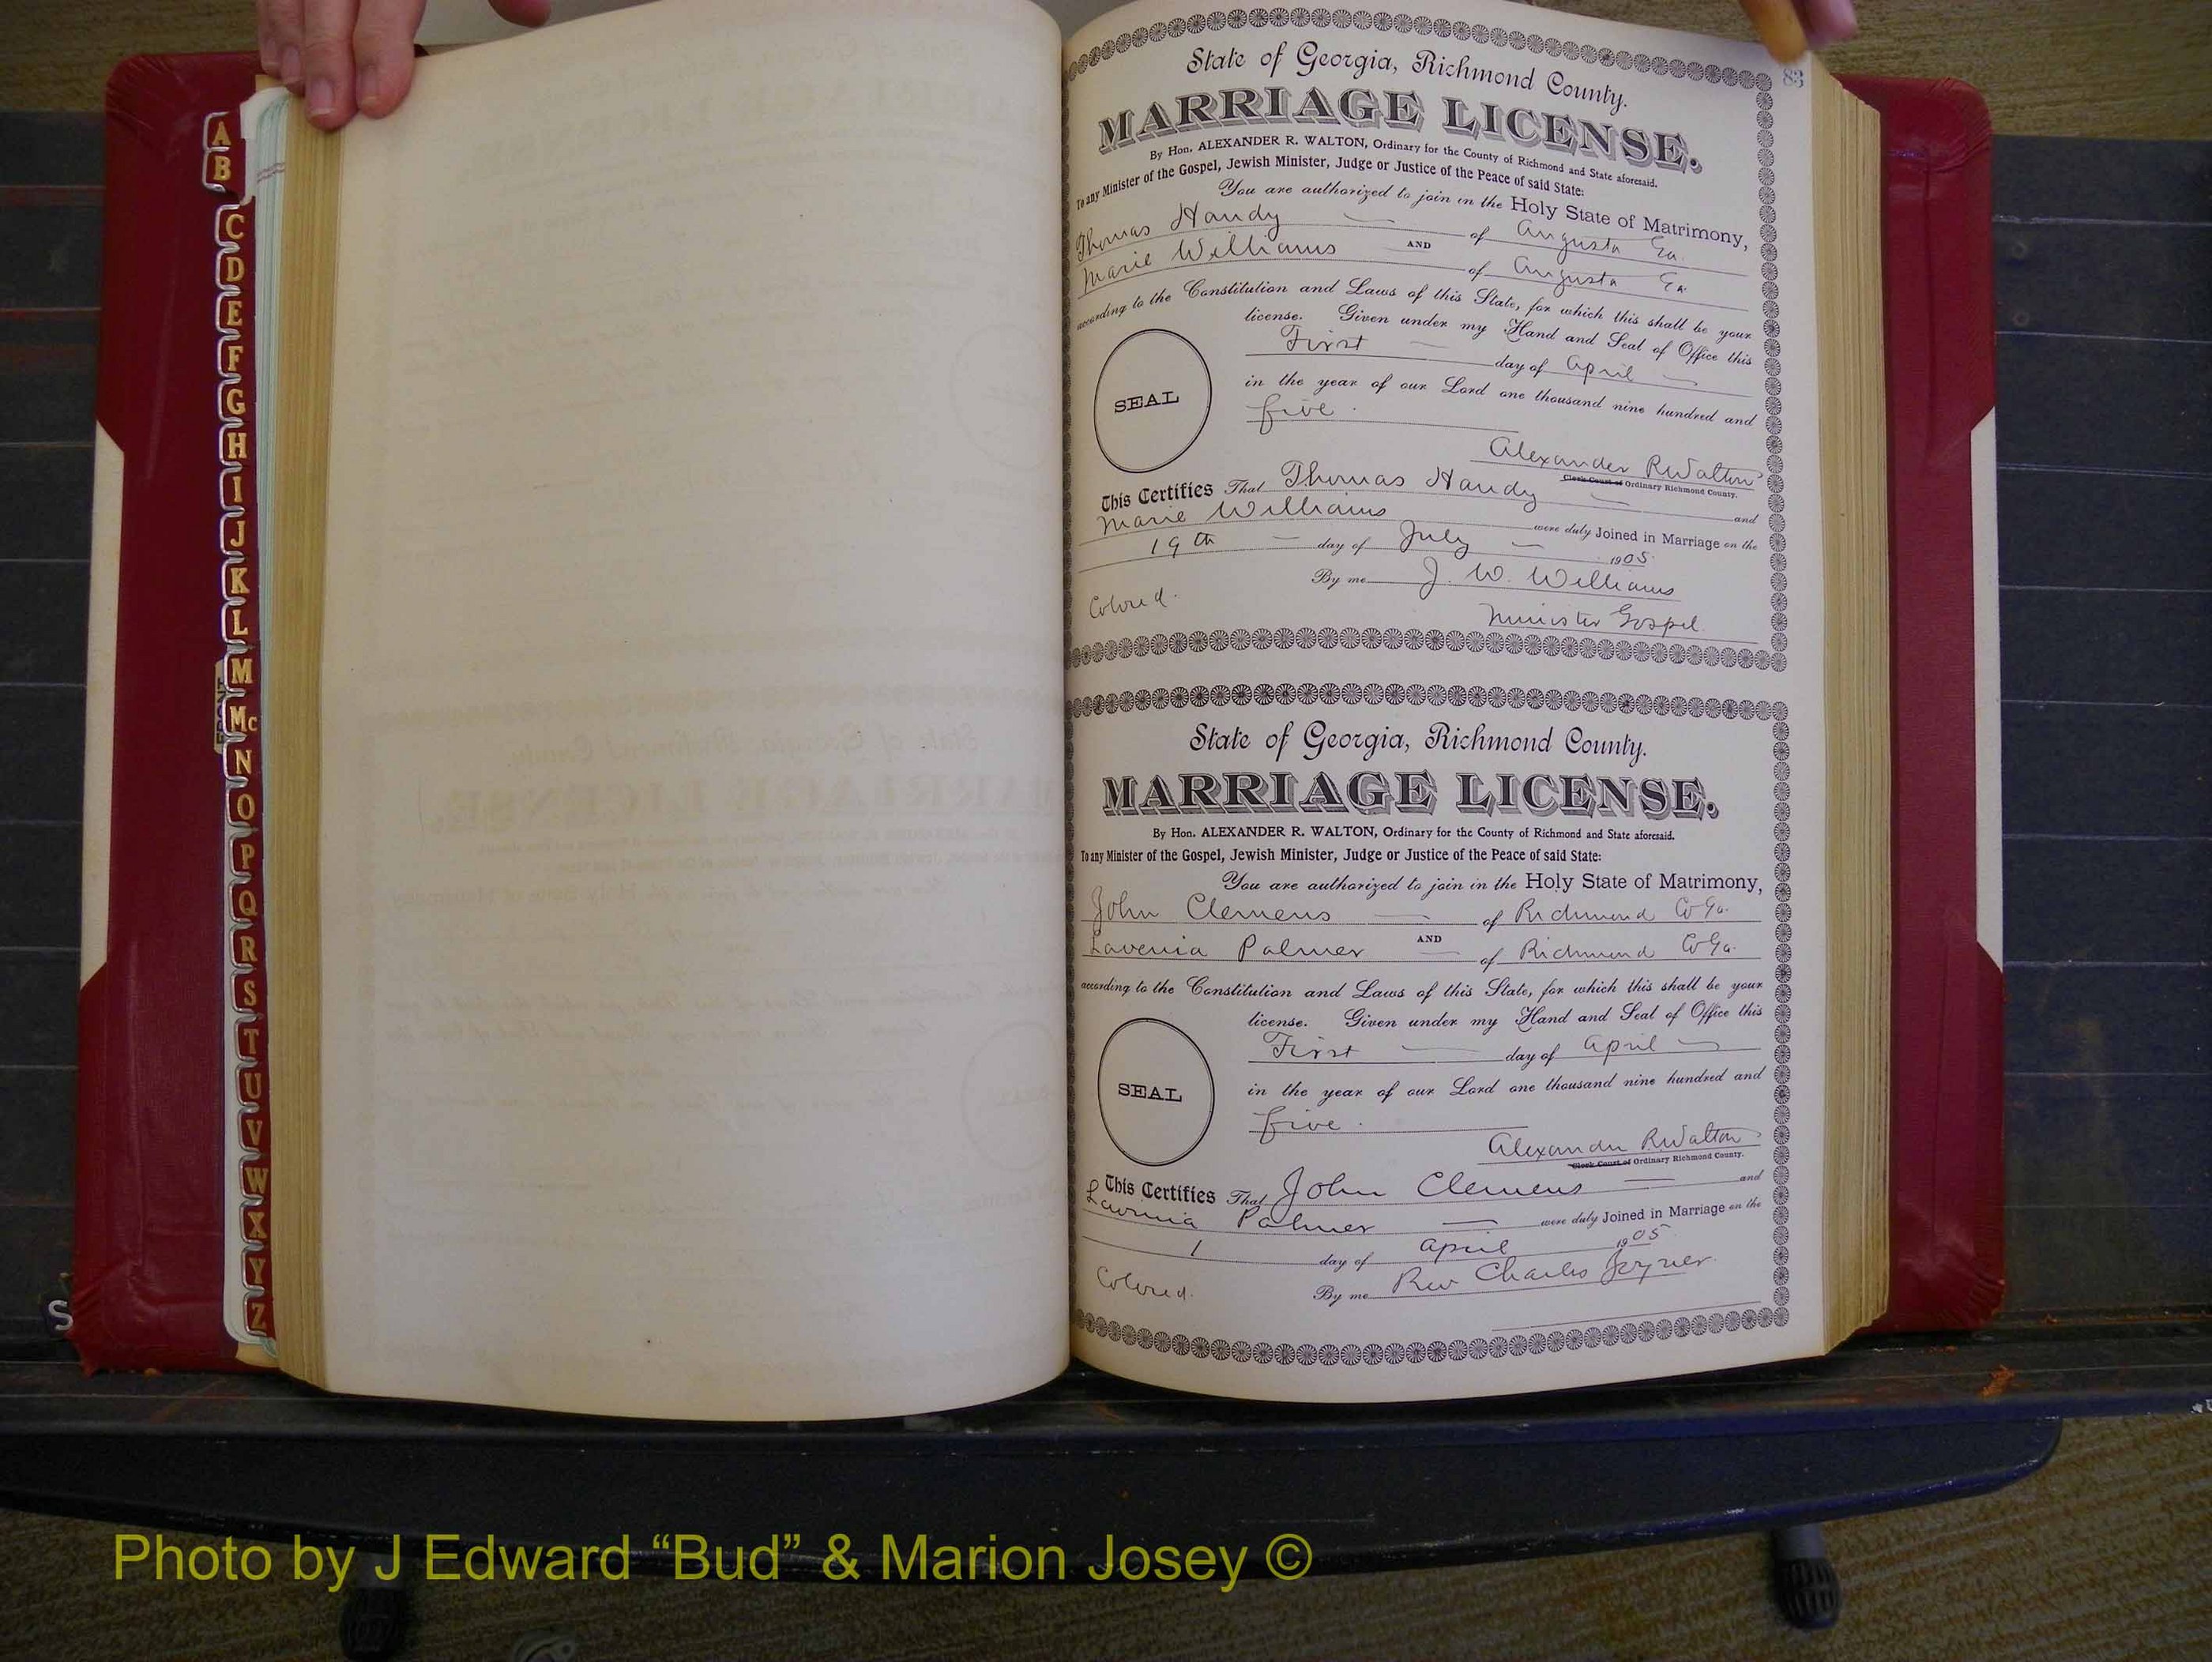 A
B
C
D
E
F
G
H
I
J
K
L
M
Mc
N
O
P
Q
R
S
T
U
V
W
X
Y
Z
83
State of Georgia, Richmond County.
MARRIAGE LICENSE.
By Hon. ALEXANDER R. WALTON, Ordinary for the County of Richmond and State aforesaid.
To any Minister of the Gospel, Jewish Minister, Judge or Justice of the Peace of said State:
You are authorized to join in the Holy State of Matrimony,
Thomas Handy of Augusta Ga.
AND
Marie Williams of Augusta Ga
according to the Constitution and Laws of this State, for which this shall be your
license. Given under my Hand and Seal of Office this
First day of April
in the year of our Lord one thousand nine hundred and
five.
SEAL
Alexander R Walton
Clerk Court of Ordinary Richmond County.
This Certifies That Thomas Handy and
Marie Williams were duly Joined in Marriage on the
19th day of July 1905
By me J. W. Williams
Colored.
Minister Gospel.
State of Georgia, Richmond County.
MARRIAGE LICENSE.
By Hon. ALEXANDER R. WALTON, Ordinary for the County of Richmond and State aforesaid.
To any Minister of the Gospel, Jewish Minister, Judge or Justice of the Peace of said State:
You are authorized to join in the Holy State of Matrimony,
John Clemens of Richmond Co Ga.
AND
Lavenia Palmer of Richmond Co Ga.
according to the Constitution and Laws of this State, for which this shall be your
license. Given under my Hand and Seal of Office this
First day of April
in the year of our Lord one thousand nine hundred and
five.
SEAL
Alexander R Walton
Clerk Court of Ordinary Richmond County.
This Certifies That John Clemens and
Lavenia Palmer were duly Joined in Marriage on the
1 day of April 1905
Colored. By me Rev Charles
Photo by J Edward “Bud” & Marion Josey ©